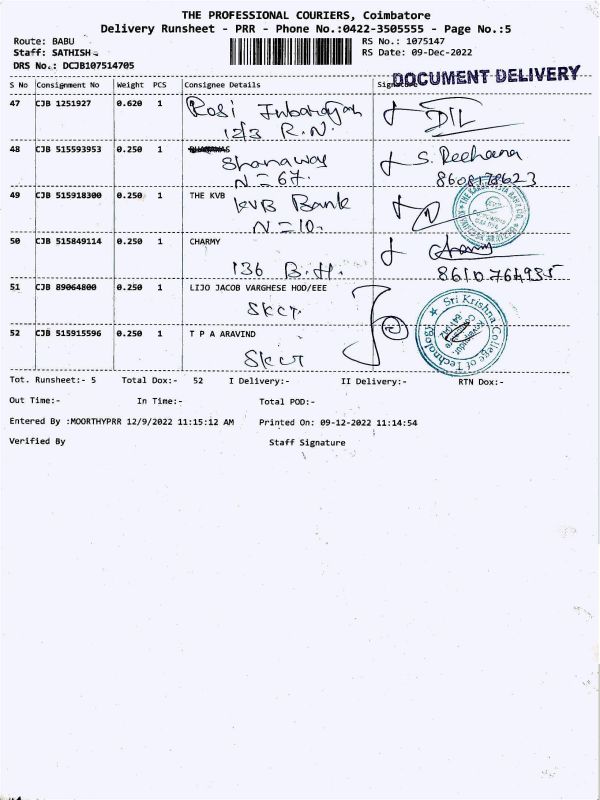 THE PROFESSIONAL COURIERS, Coimbatore
Delivery Runsheet - PRR - Phone No.:0422-3505555 - Page No.:5
Route: BABU
RS No.: 1075147
Staff: SATHISH
RS Date: 09-Dec-2022
DRS No.: DCJB107514705
DOCUMENT DELIVERY
S No Consignment No Weight PCS Consignee Details Signature
47 CJB 1251927 0.620 1 Rosi
123 R.N.
48 CJB 515593953 0.250 1
S. Reehana
N=67.
8608178623
49 CJB 515918300 0.250 1 THE KVB KVB Bank
N=10.
50 CJB 515849114 0.250 1 CHARMY
136 B.H.
8610764935
51 CJB 89064800 0.250 1 LIJO JACOB VARGHESE HOD/EEE
Skct
Sri Krishna College of Technology
Coimbatore
52 CJB 515915596 0.250 1 T P A ARAVIND
Skct
Tot. Runsheet:- 5 Total Dox:- 52 I Delivery:- II Delivery:- RTN Dox:-
Out Time:- In Time:- Total POD:-
Entered By :MOORTHYPRR 12/9/2022 11:15:12 AM Printed On: 09-12-2022 11:14:54
Verified By Staff Signature